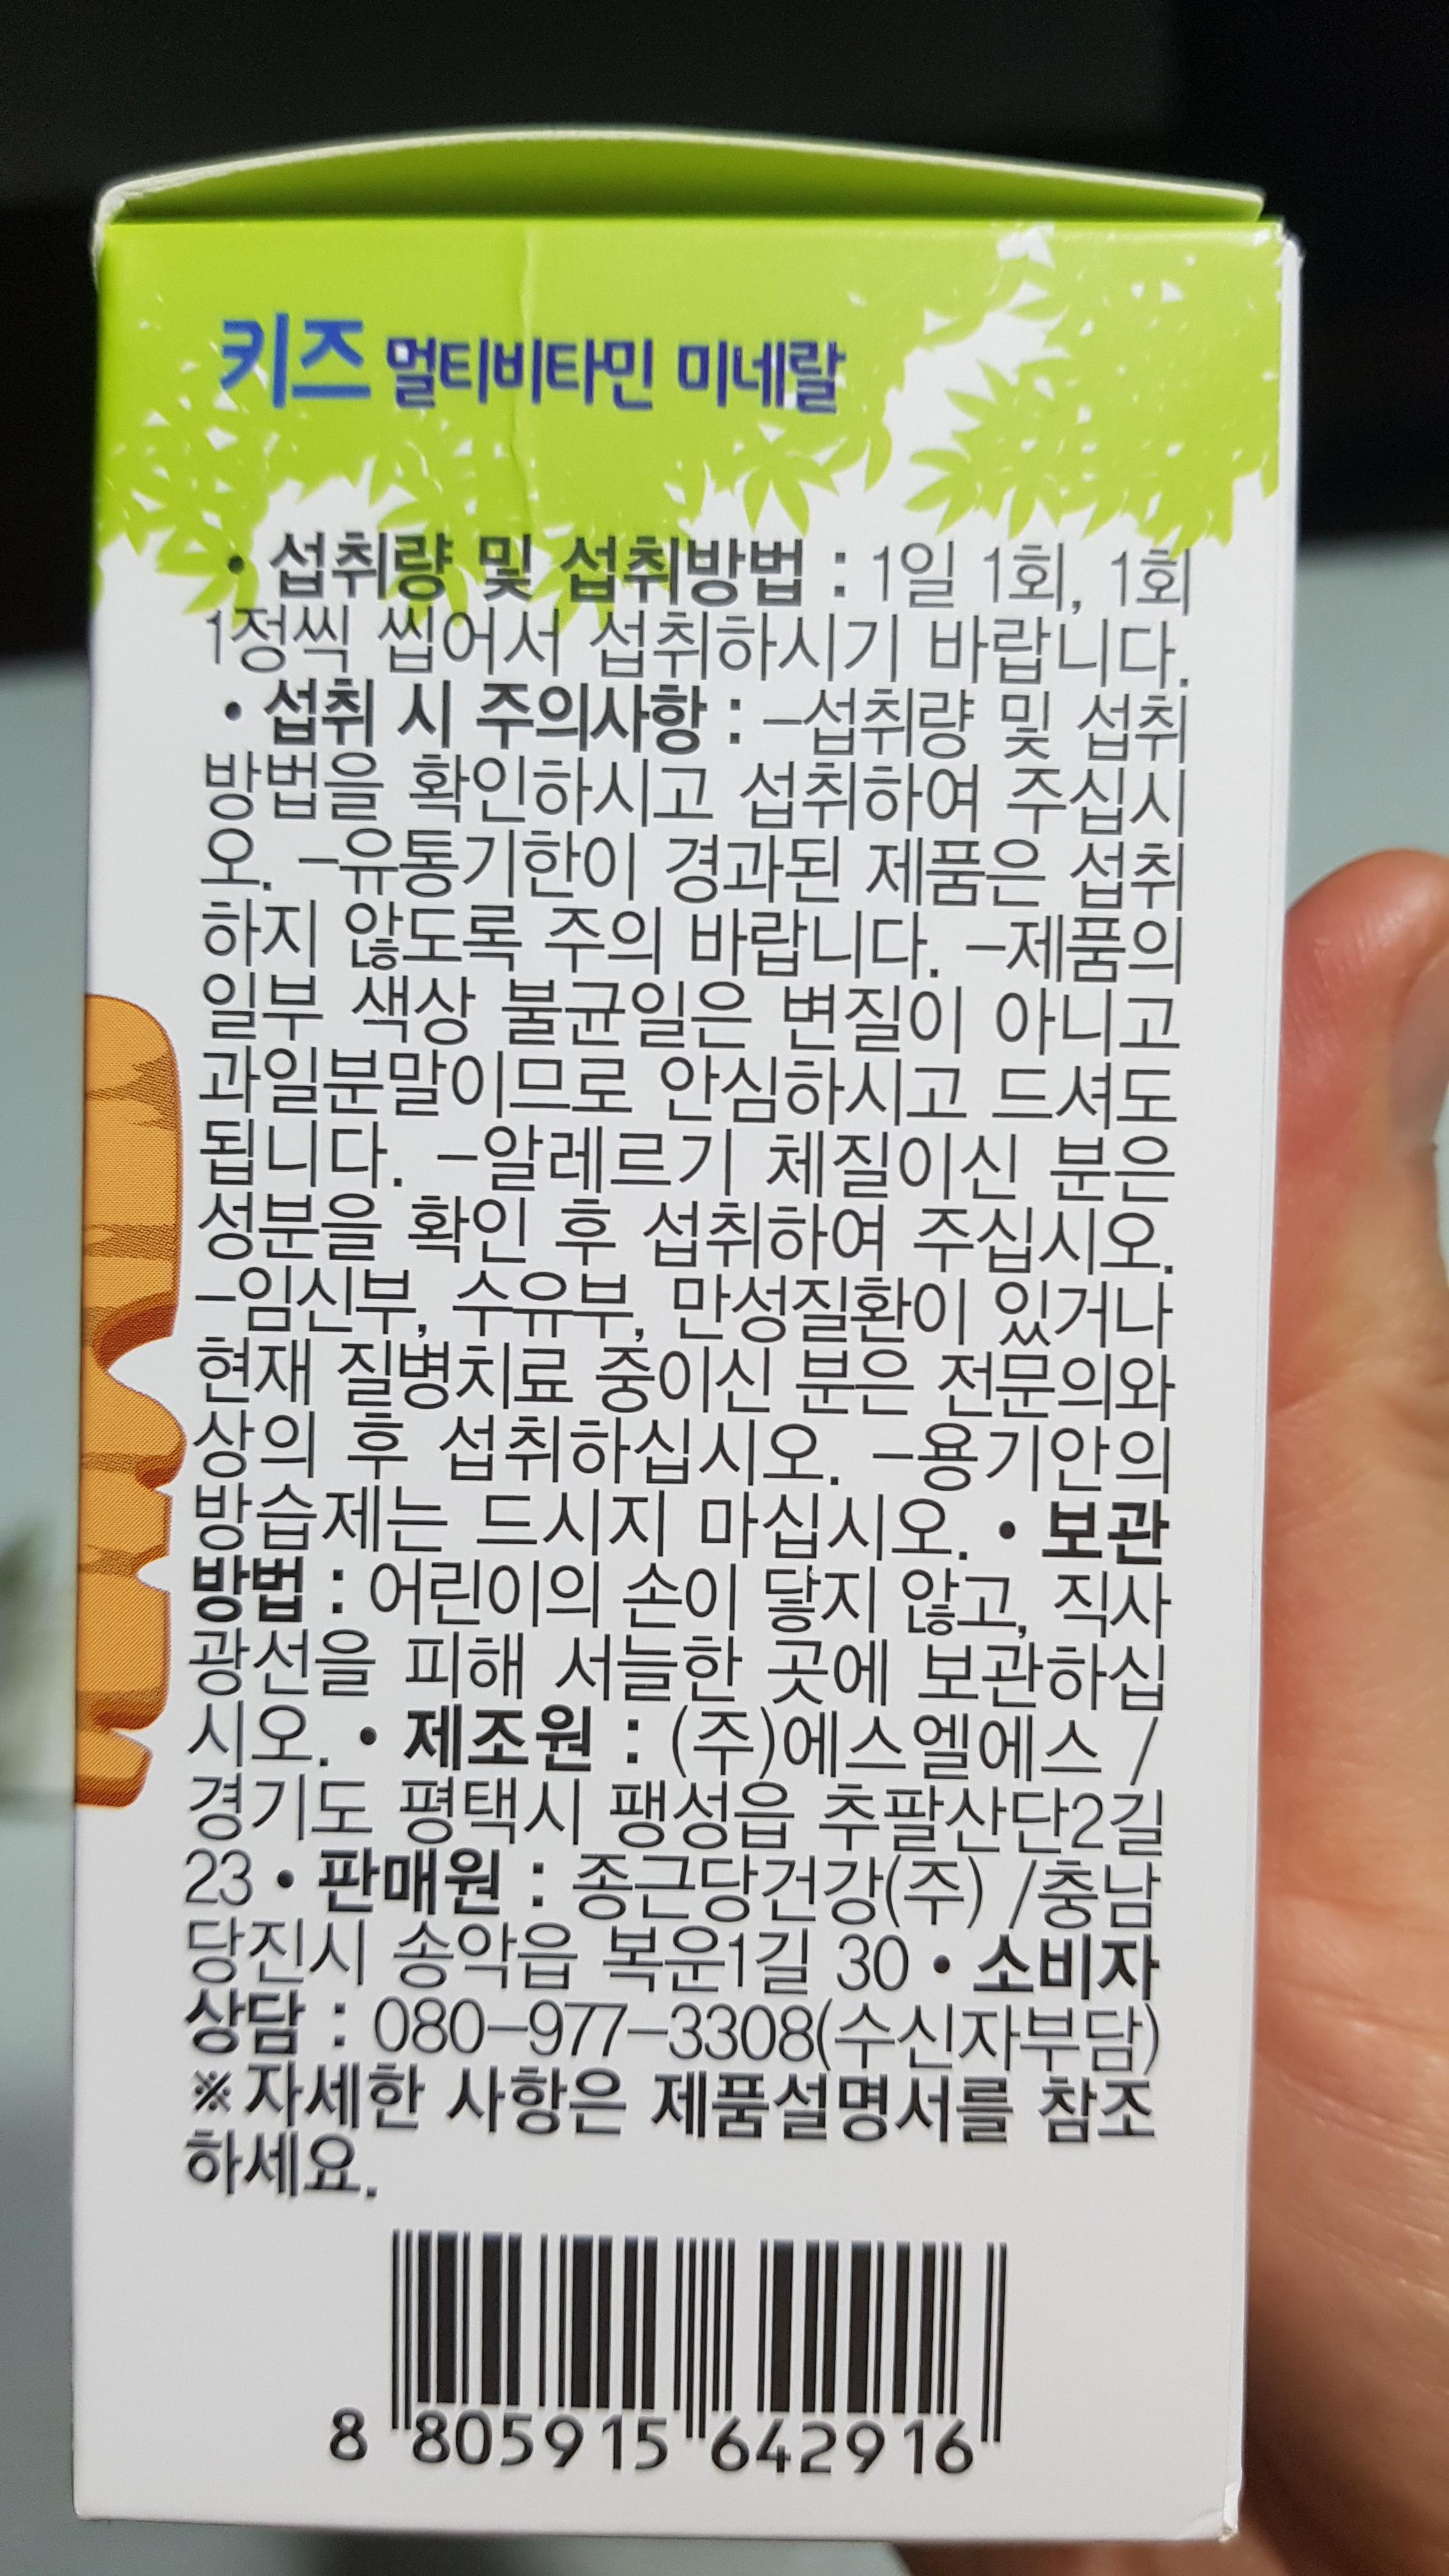 키즈 멀티비타민 미네랄
• 섭취량 및 섭취방법 : 1일 1회, 1회
1정씩 씹어서 섭취하시기 바랍니다.
• 섭취 시 주의사항 : –섭취량 및 섭취
방법을 확인하시고 섭취하여 주십시
오. –유통기한이 경과된 제품은 섭취
하지 않도록 주의 바랍니다. –제품의
일부 색상 불균일은 변질이 아니고
과일분말이므로 안심하시고 드셔도
됩니다. –알레르기 체질이신 분은
성분을 확인 후 섭취하여 주십시오.
–임신부, 수유부, 만성질환이 있거나
현재 질병치료 중이신 분은 전문의와
상의 후 섭취하십시오. –용기안의
방습제는 드시지 마십시오. • 보관
방법 : 어린이의 손이 닿지 않고, 직사
광선을 피해 서늘한 곳에 보관하십
시오. • 제조원 : (주)에스엘에스 /
경기도 평택시 팽성읍 추팔산단2길
23 • 판매원 : 종근당건강(주) /충남
당진시 송악읍 복운1길 30 • 소비자
상담 : 080–977–3308(수신자부담)
※자세한 사항은 제품설명서를 참조
하세요.
8 805915 642916